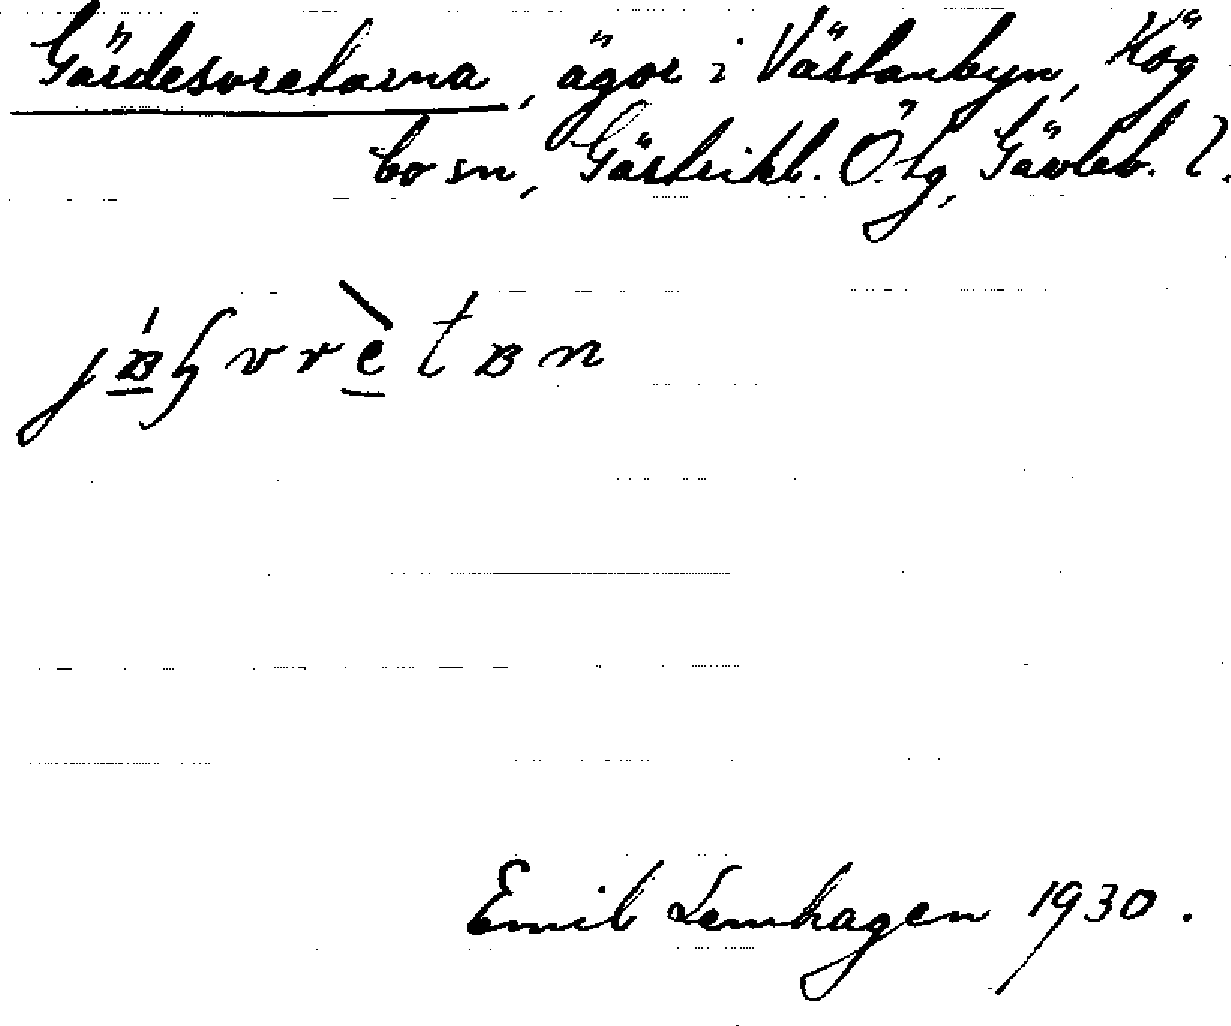 Gärdesvretarna, ägor i Västanbyn, Hög
bo sn, Gästrikl. Ö. tg, Gävleb. l.
Emil Lemhagen 1930.